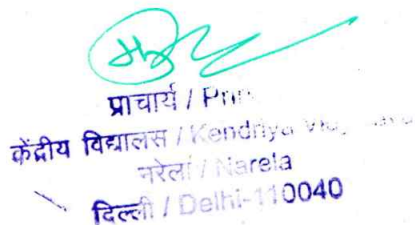 प्राचार्य /
केंद्रीय विद्यालस / Kendriya
नरेला / Narela
दिल्ली / Delhi-110040